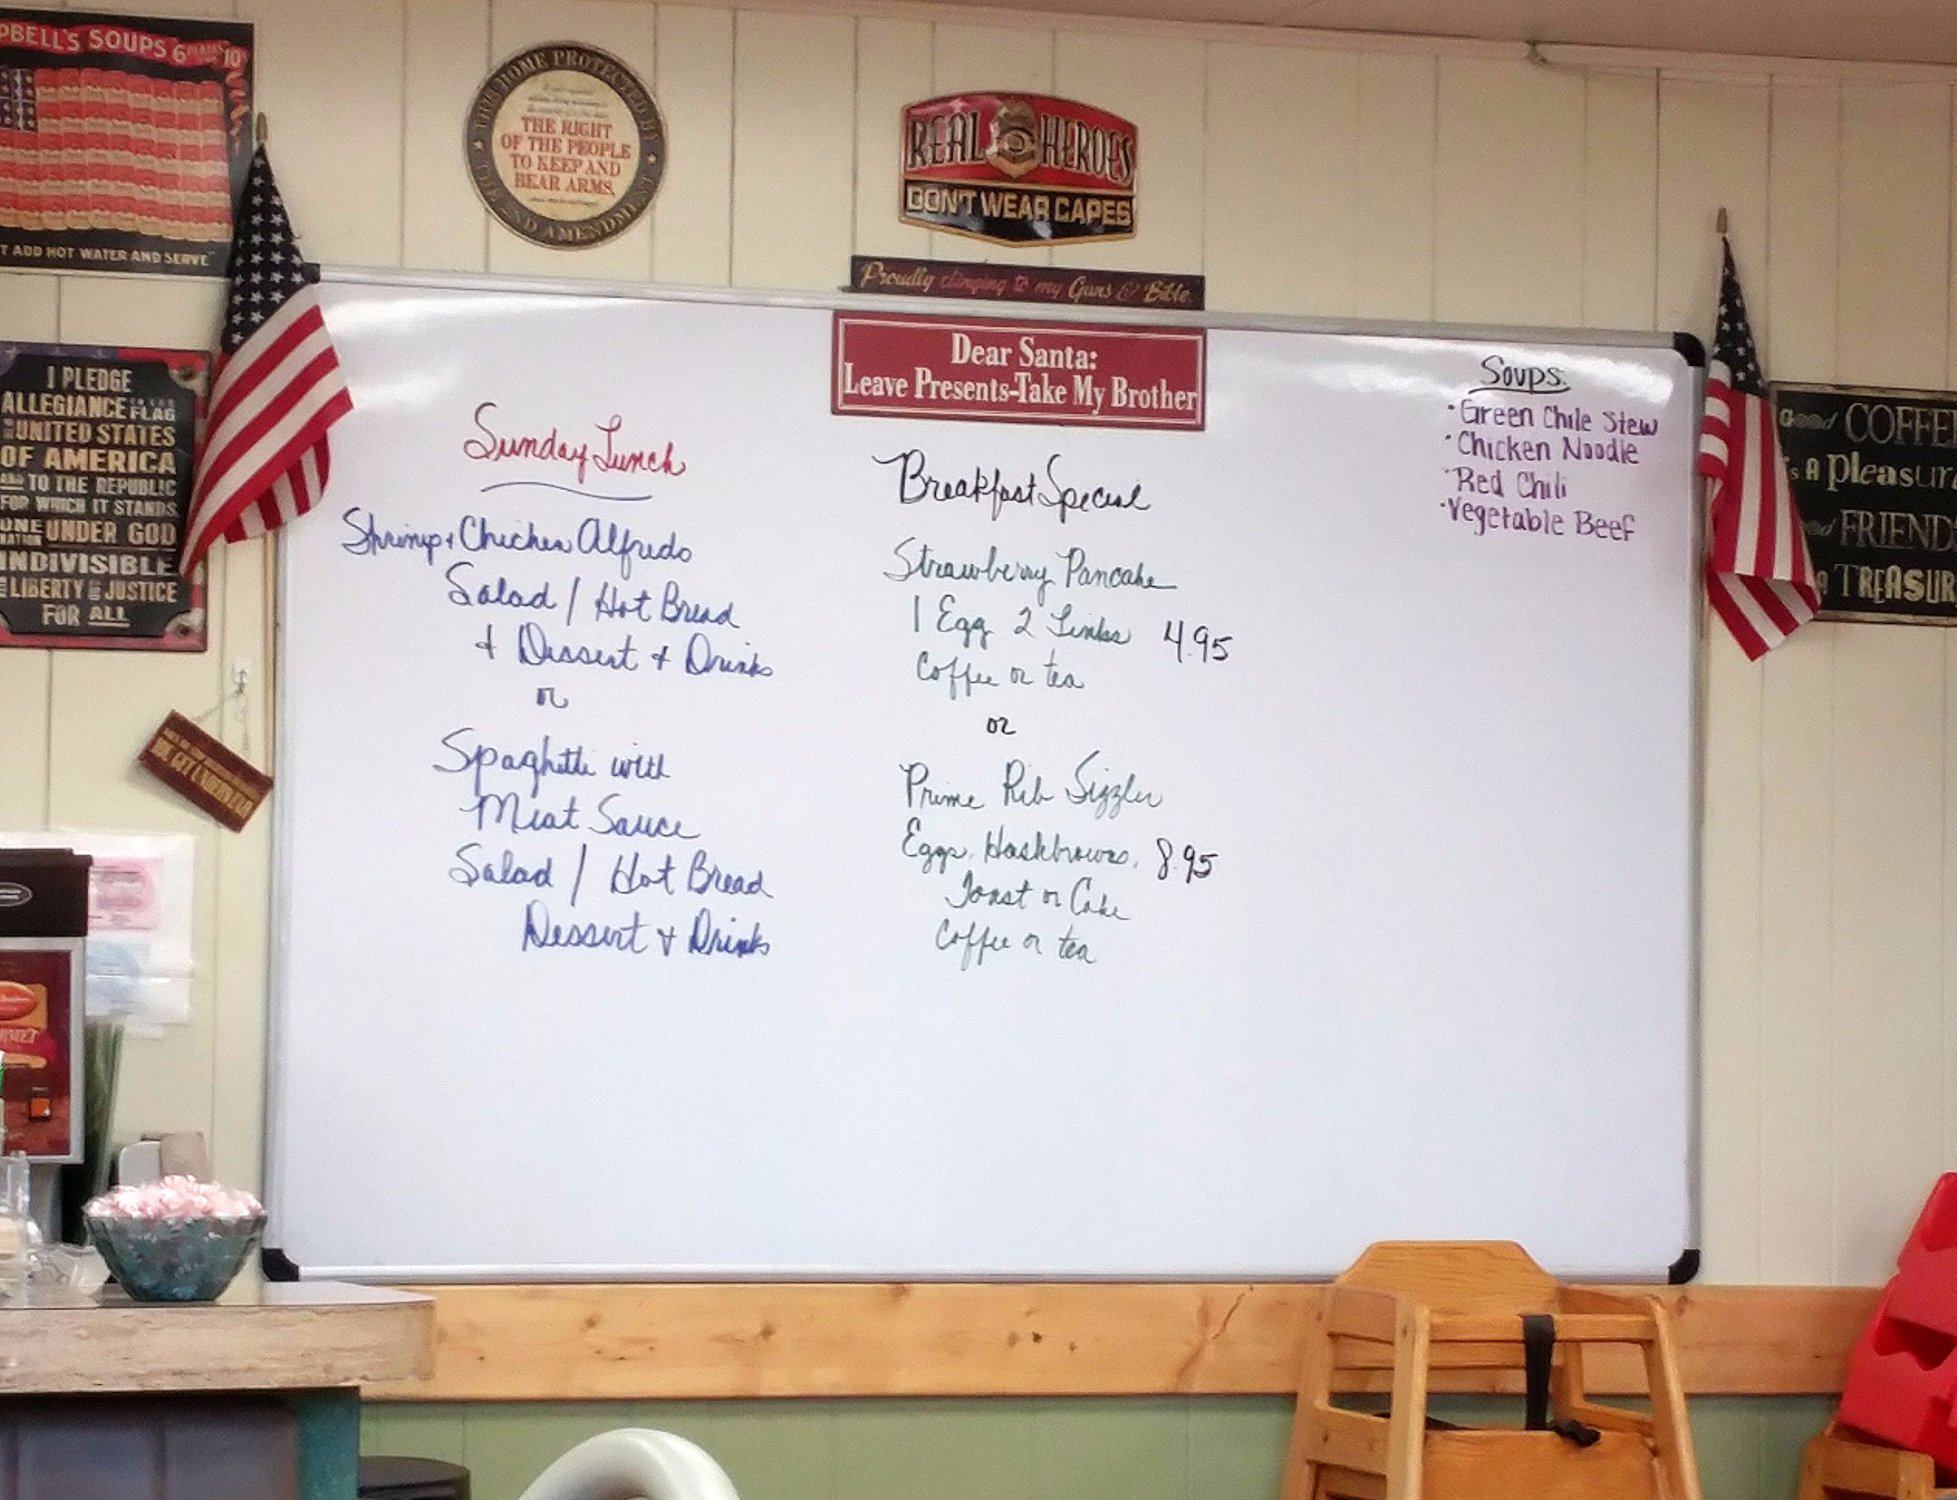 PBELL'S SOUPS 6 10¢
T ADD HOT WATER AND SERVE"
THE HOME PROTECTED BY
THE RIGHT
OF THE PEOPLE
TO KEEP AND
BEAR ARMS.
THE 2ND AMENDMENT
REAL HEROES
DON'T WEAR CAPES
Proudly clinging to my Guns & Bible
Dear Santa:
Leave Presents-Take My Brother
I PLEDGE
ALLEGIANCE TO THE FLAG
UNITED STATES
OF AMERICA
AND TO THE REPUBLIC
FOR WHICH IT STANDS
ONE NATION UNDER GOD
INDIVISIBLE
LIBERTY & JUSTICE
FOR ALL
Sunday Lunch
Shrimp + Chicken Alfredo
Salad / Hot Bread
+ Dessert + Drinks
or
Spaghetti with
Meat Sauce
Salad / Hot Bread
Dessert + Drinks
Breakfast Special
Strawberry Pancake
1 Egg 2 Links 4.95
Coffee or tea
or
Prime Rib Sizzler
Eggs, Hashbrowns, 8.95
Toast or Cake
Coffee or tea
Soups:
·Green Chile Stew
·Chicken Noodle
·Red Chili
·Vegetable Beef
Good COFFE
is A Pleasur
FRIEND
a TREASUR